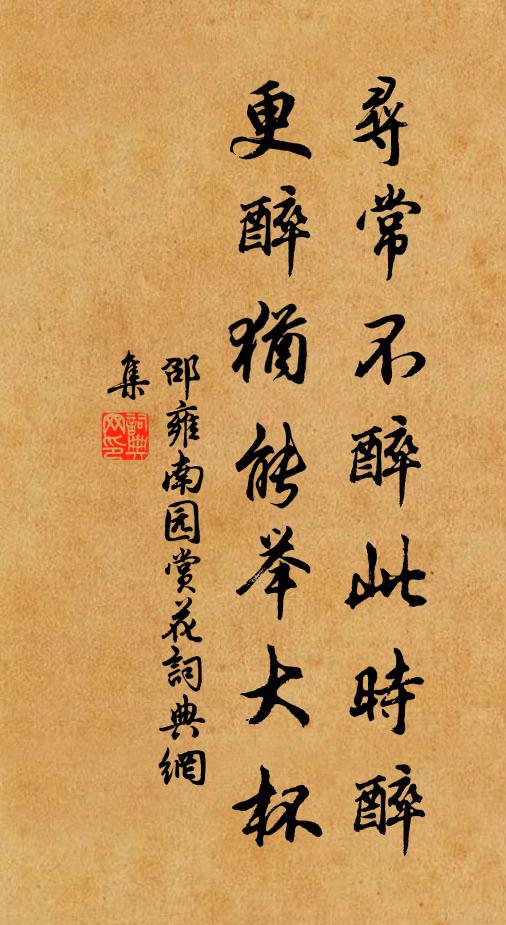 尋常不醉此時醉
更醉猶能举大杯
邵雍南园赏花詞典網
集
詞典
网印